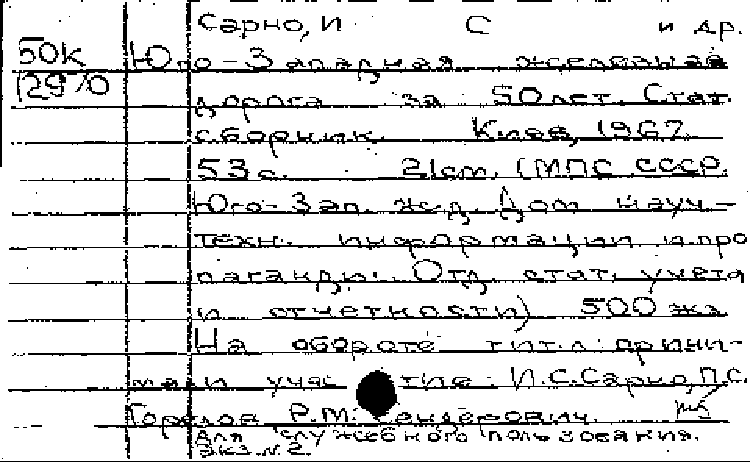 Сарно, И С и др.
50к Юго-Западная железная
12970 дорога за 50 лет. Стат.
сборник. Киев, 1967.
53 с. 21 см. (МПС СССР.
Юго-Зап. ж.д. Дом науч-
техн. информации и про
паганды. Отд. стат. учета
и отчетности) 500 экз
На обороте тит. л. прини-
мали учас тие: И.С. Сарно, П.С.
Горелов Р.М. Сандерович.
Для служебного пользования.
Экз. № 2